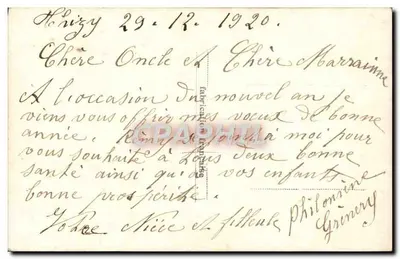 Thizy 29.12.1920.
Chère Oncle et Chère Marrainne
A l'occasion du nouvel an je
viens vous offrir mes voeux de bonne
année. se joind à moi pour
vous souhaité à tous deux bonne
santé ainsi qu'à vos enfants
bonne prospérité.
Votre Nièce et filleule
Philomène
fabrication française